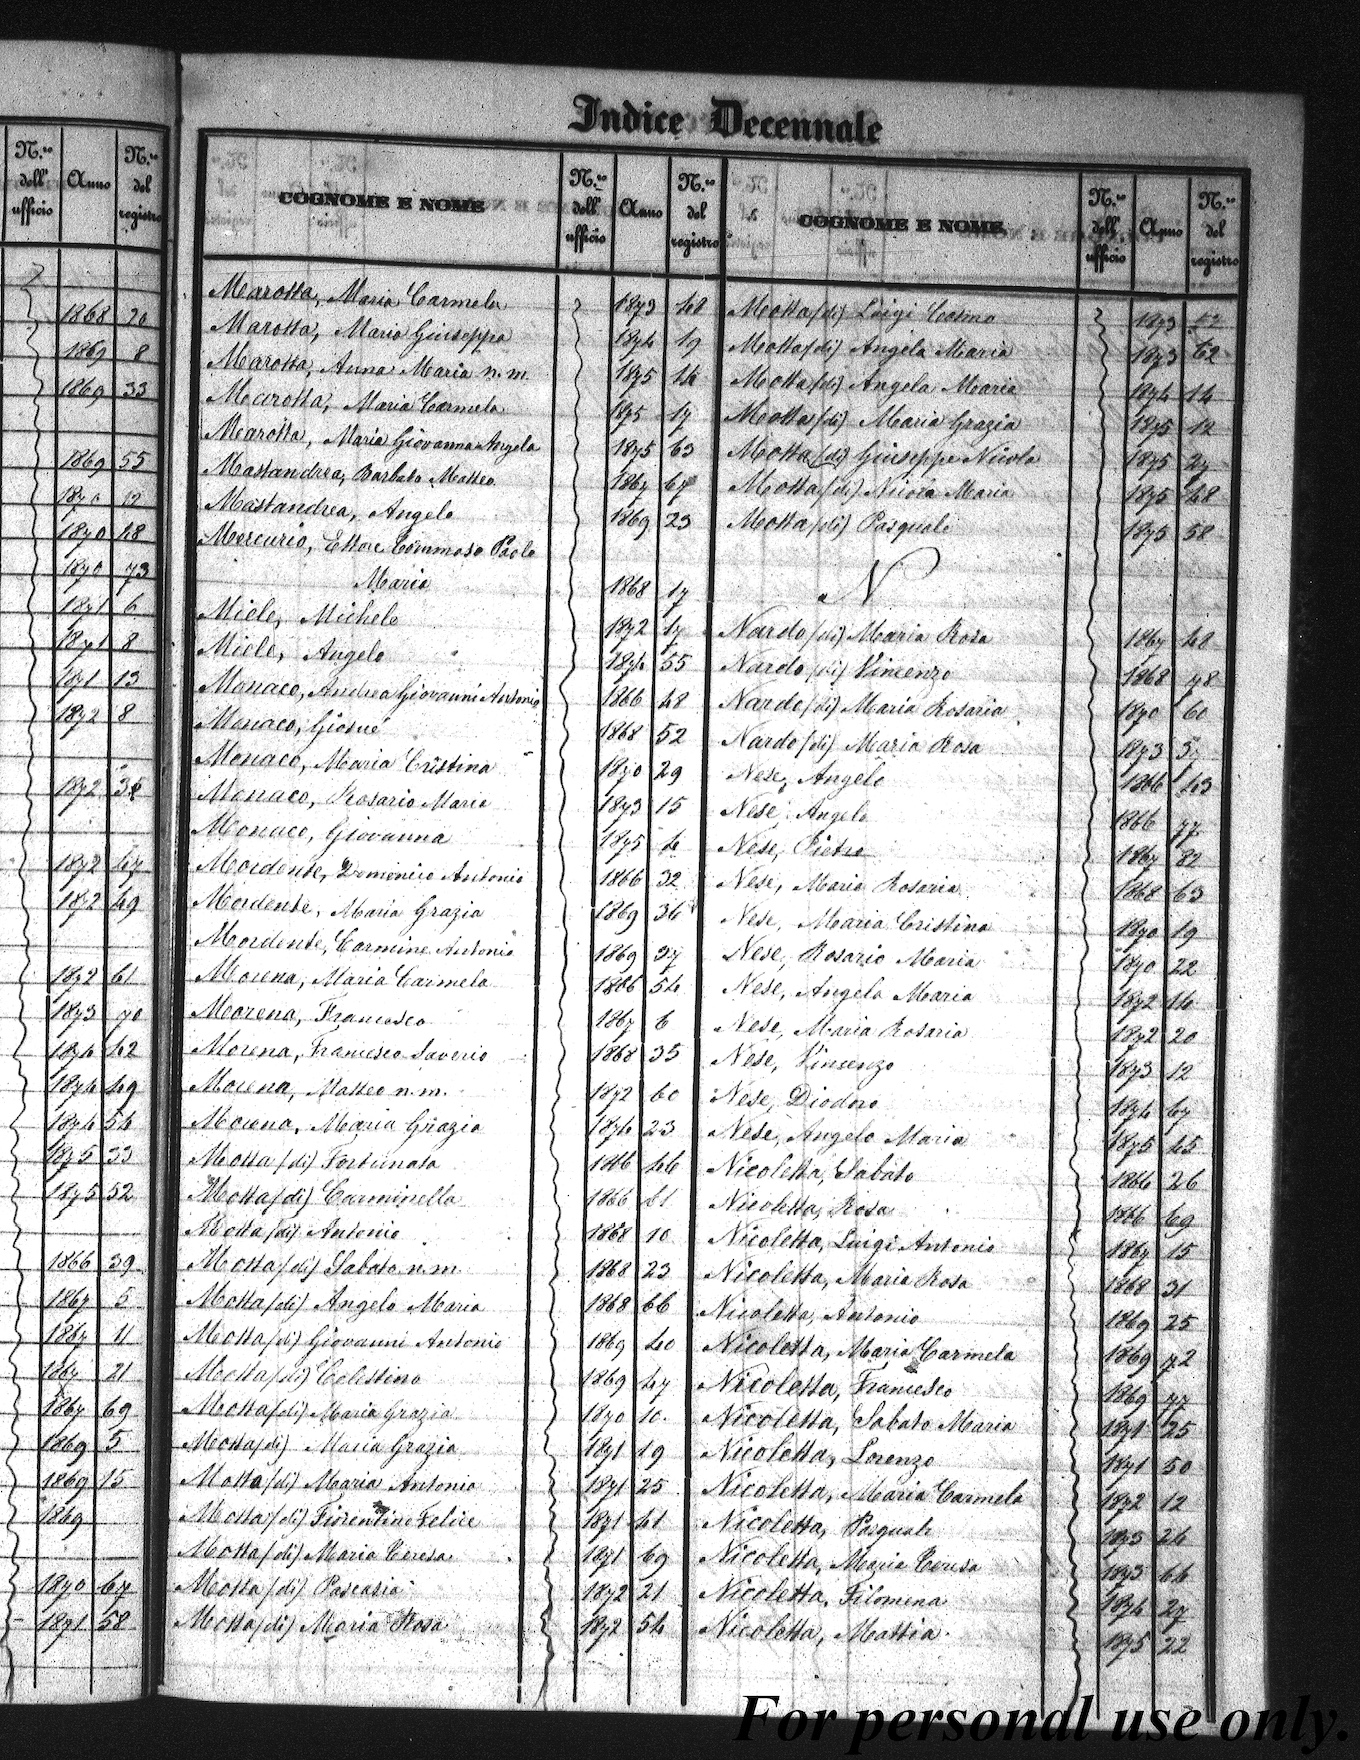 Indice Decennale
N.ro dell' ufficio Anno N.ro del registro
1868 20
1869 8
1869 33
1869 55
1870 12
1870 48
1870 73
1871 6
1871 8
1871 13
1872 8
1872
1872 47
1872 49
1872 61
1873 70
1874 42
1874 49
1874 54
1875 33
1875 52
1866 39
1867 5
1867 11
1867 21
1867 69
1869 5
1869 15
1869
1870 67
1871 58
COGNOME E NOME N.ro dell' ufficio Anno N.ro del registro
Marotta, Maria Carmela 1873 48
Marotta, Maria Giuseppa 1874 19
Marotta, Anna Maria n.m. 1875 14
Marotta, Maria Carmela 1875 17
Marotta, Maria Giovanna Angela 1875 63
Mastandrea, Barbato Matteo 1867 67
Mastandrea, Angelo 1869 23
Mercurio, Ettore Tommaso Paolo
Maria 1868 17
Miele, Michele 1872 17
Miele, Angelo 1874 55
Monaco, Andrea Giovanni Antonio 1866 48
Monaco, Giosuè 1868 52
Monaco, Maria Cristina 1870 29
Monaco, Rosario Maria 1873 15
Monaco, Giovanna 1875 4
Mordente, Domenico Antonio 1866 32
Mordente, Maria Grazia 1869 36
Mordente, Carmine Antonio 1869 37
Morena, Maria Carmela 1866 54
Morena, Francesco 1867 6
Morena, Francesco Saverio 1868 35
Morena, Matteo n.m. 1872 60
Morena, Maria Grazia 1874 23
Motta (di) Fortunata 1866 46
Motta (di) Carminella 1866 61
Motta (di) Antonio 1868 10
Motta (di) Sabato n.m. 1868 23
Motta (di) Angelo Maria 1868 66
Motta (di) Giovanni Antonio 1869 40
Motta (di) Celestino 1869 47
Motta (di) Maria Grazia 1870 10
Motta (di) Maria Grazia 1871 19
Motta (di) Maria Antonia 1871 25
Motta (di) Fiorentino Felice 1871 41
Motta (di) Maria Teresa 1871 69
Motta (di) Pascasia 1872 21
Motta (di) Maria Rosa 1872 54
COGNOME E NOME N.ro dell' ufficio Anno N.ro del registro
Motta (di) Luigi Cosmo 1873
Motta (di) Angela Maria 1873 62
Motta (di) Angela Maria 1874 14
Motta (di) Maria Grazia 1875 12
Motta (di) Giuseppe Nicola 1875 27
Motta (di) Nicola Maria 1875 48
Motta (di) Pasquale 1875 58
N
Nardo (di) Maria Rosa 1867 48
Nardo (di) Vincenzo 1868 78
Nardo (di) Maria Rosaria 1870 60
Nardo (di) Maria Rosa 1873 57
Nese, Angelo 1866 43
Nese, Angelo 1866 77
Nese, Pietro 1867 82
Nese, Maria Rosaria 1868 63
Nese, Maria Cristina 1870 19
Nese, Rosario Maria 1870 22
Nese, Angelo Maria 1872 14
Nese, Maria Rosaria 1872 20
Nese, Vincenzo 1873 12
Nese, Diodoro 1874 67
Nese, Angelo Maria 1875 45
Nicoletta, Sabato 1866 26
Nicoletta, Rosa 1866 69
Nicoletta, Luigi Antonio 1867 15
Nicoletta, Maria Rosa 1868 31
Nicoletta, Antonio 1869 25
Nicoletta, Maria Carmela 1869 72
Nicoletta, Francesco 1869 77
Nicoletta, Sabato Maria 1871 25
Nicoletta, Lorenzo 1871 50
Nicoletta, Maria Carmela 1872 12
Nicoletta, Pasquale 1873 26
Nicoletta, Maria Teresa 1873 64
Nicoletta, Filomena 1874 27
Nicoletta, Mattia 1875 22
For personal use only.